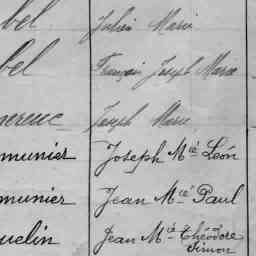 bel Julien Marie
bel François Joseph Marie
Joseph Marie
munier Joseph Mie León
munier Jean Mie Paul
uelin Jean Mie Théodore
Simon